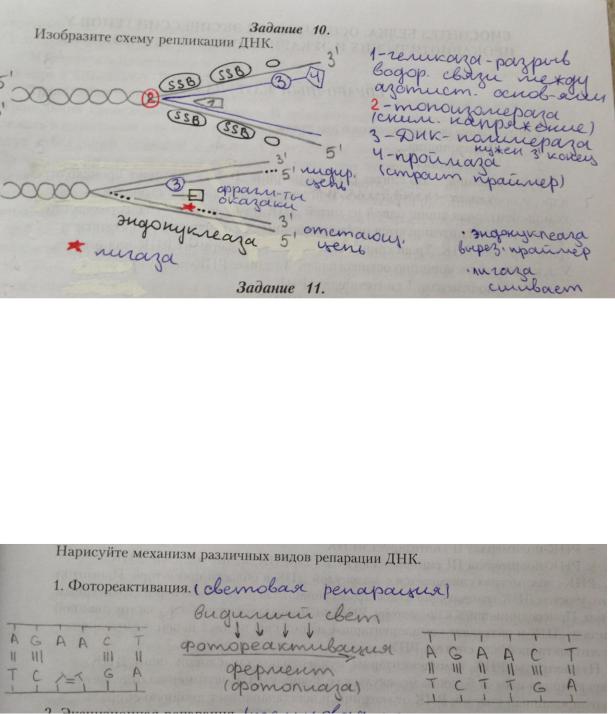 Задание 10.
Изобразите схему репликации ДНК.
5'
SSB SSB
3'
3 4
2
1
SSB SSB
5'
1-геликаза-разрыв
водор. связи между
азотист. основ-ями
2-топоизомераза
(сним. напряжение)
3-ДНК-полимераза
нужен 3' конец
4-праймаза
(строит праймер)
3'
5' лидир. цепь
3
фрагм-ты
оказаки
3'
5' отстающ.
цепь
эндонуклеаза
лигаза
· эндонуклеаза
вырез. праймер
· лигаза
сшивает
Задание 11.
Нарисуйте механизм различных видов репарации ДНК.
1. Фотореактивация. (световая репарация)
видимый свет
фотореактивация
фермент
(фотолиаза)
A G A A C T
T C T=T G A
A G A A C T
T C T T G A